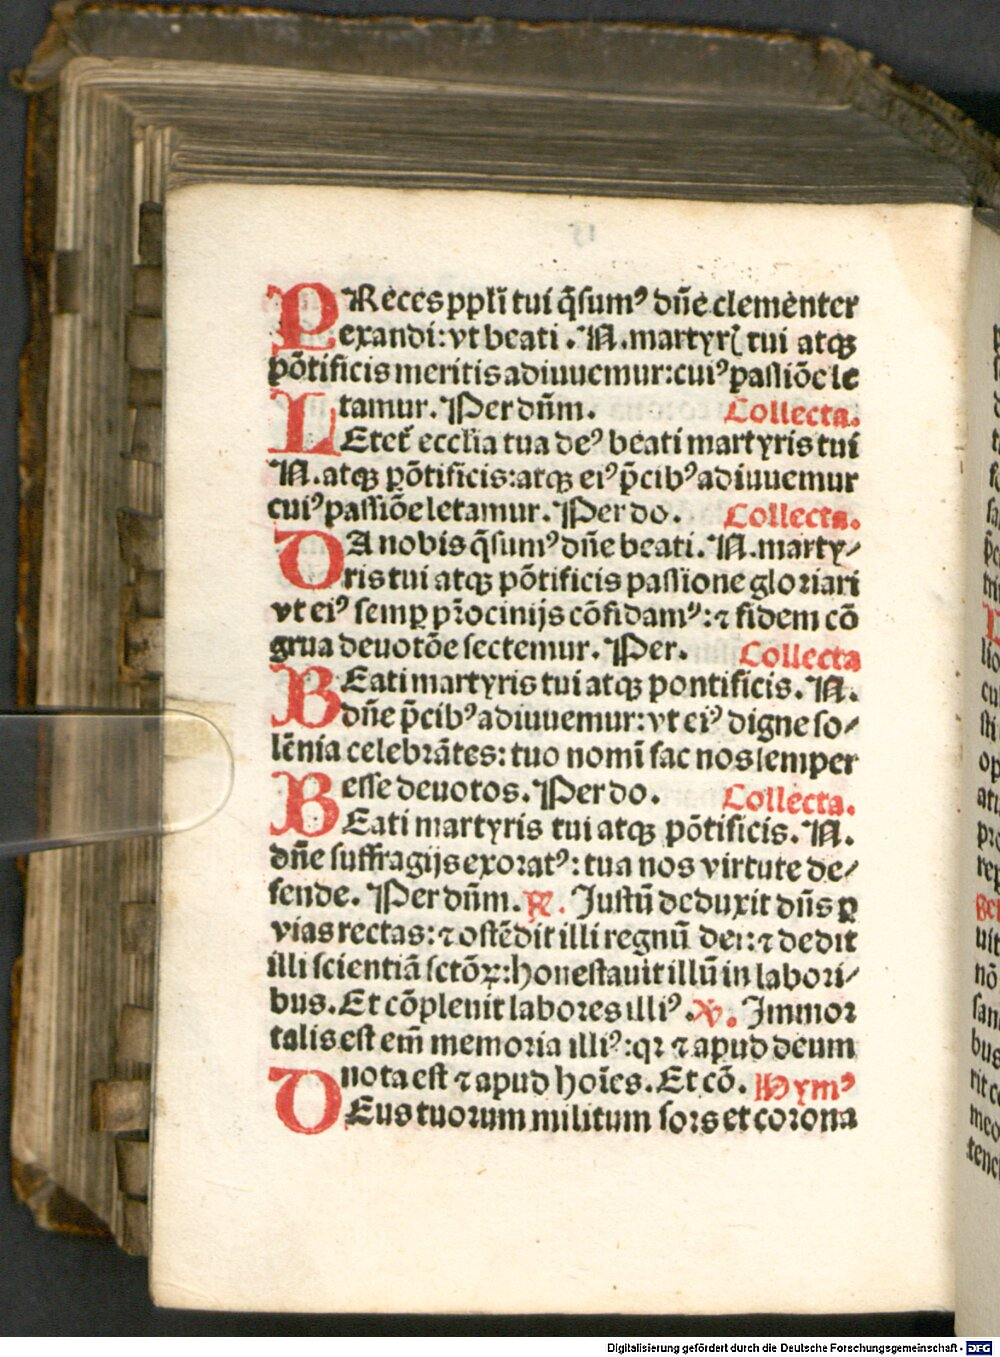 PReces ppłi tui q̃sumꝰ dn̄e clementer
exandi: vt beati . N. martyrꝭ tui atqꝫ
põtificis meritis adiuuemur: cuiꝰ passiõe le
tamur. Per dn̄m. Collecta.
LEtet̃ ecclia tua deꝰ beati martyris tui
N. atqꝫ põtificis: atqꝫ eiꝰ p̃cibꝰ adiuuemur
cuiꝰ passiõe letamur. Per do. Collecta.
DA nobis q̃sumꝰ dn̄e beati. N. marty⸗
ris tui atqꝫ põtificis passione gloriari
vt eiꝰ semꝑ pr̃ocinijs cõfidamᷣ: ⁊ fidem cõ
grua deuotõe sectemur. Per. Collecta
BEati martyris tui atqꝫ pontificis. N.
dn̄e p̃cibꝰ adiuuemur: vt eiꝰ digne so⸗
lẽnia celebrãtes: tuo nomĩ fac nos semper
esse deuotos. Per do. Collecta.
BEati martyris tui atqꝫ põtificis. N.
dn̄e suffragijs exoratꝰ: tua nos virtute de⸗
fende. Per dn̄m. ℞. Justũ deduxit dn̄s ꝑ
vias rectas: ⁊ ostẽdit illi regnũ dei: ⁊ dedit
illi scientiã sctõꝝ: honestauit illũ in labori⸗
bus. Et cõpleuit labores illiꝰ. ℣. Immor
talis est em̃ memoria illiꝰ: qꝛ ⁊ apud deum
nota est ⁊ apud hoĩes. Et cõ. Hymꝰ
DEus tuorum militum sors et corona
Digitalisierung gefördert durch die Deutsche Forschungsgemeinschaft - DFG